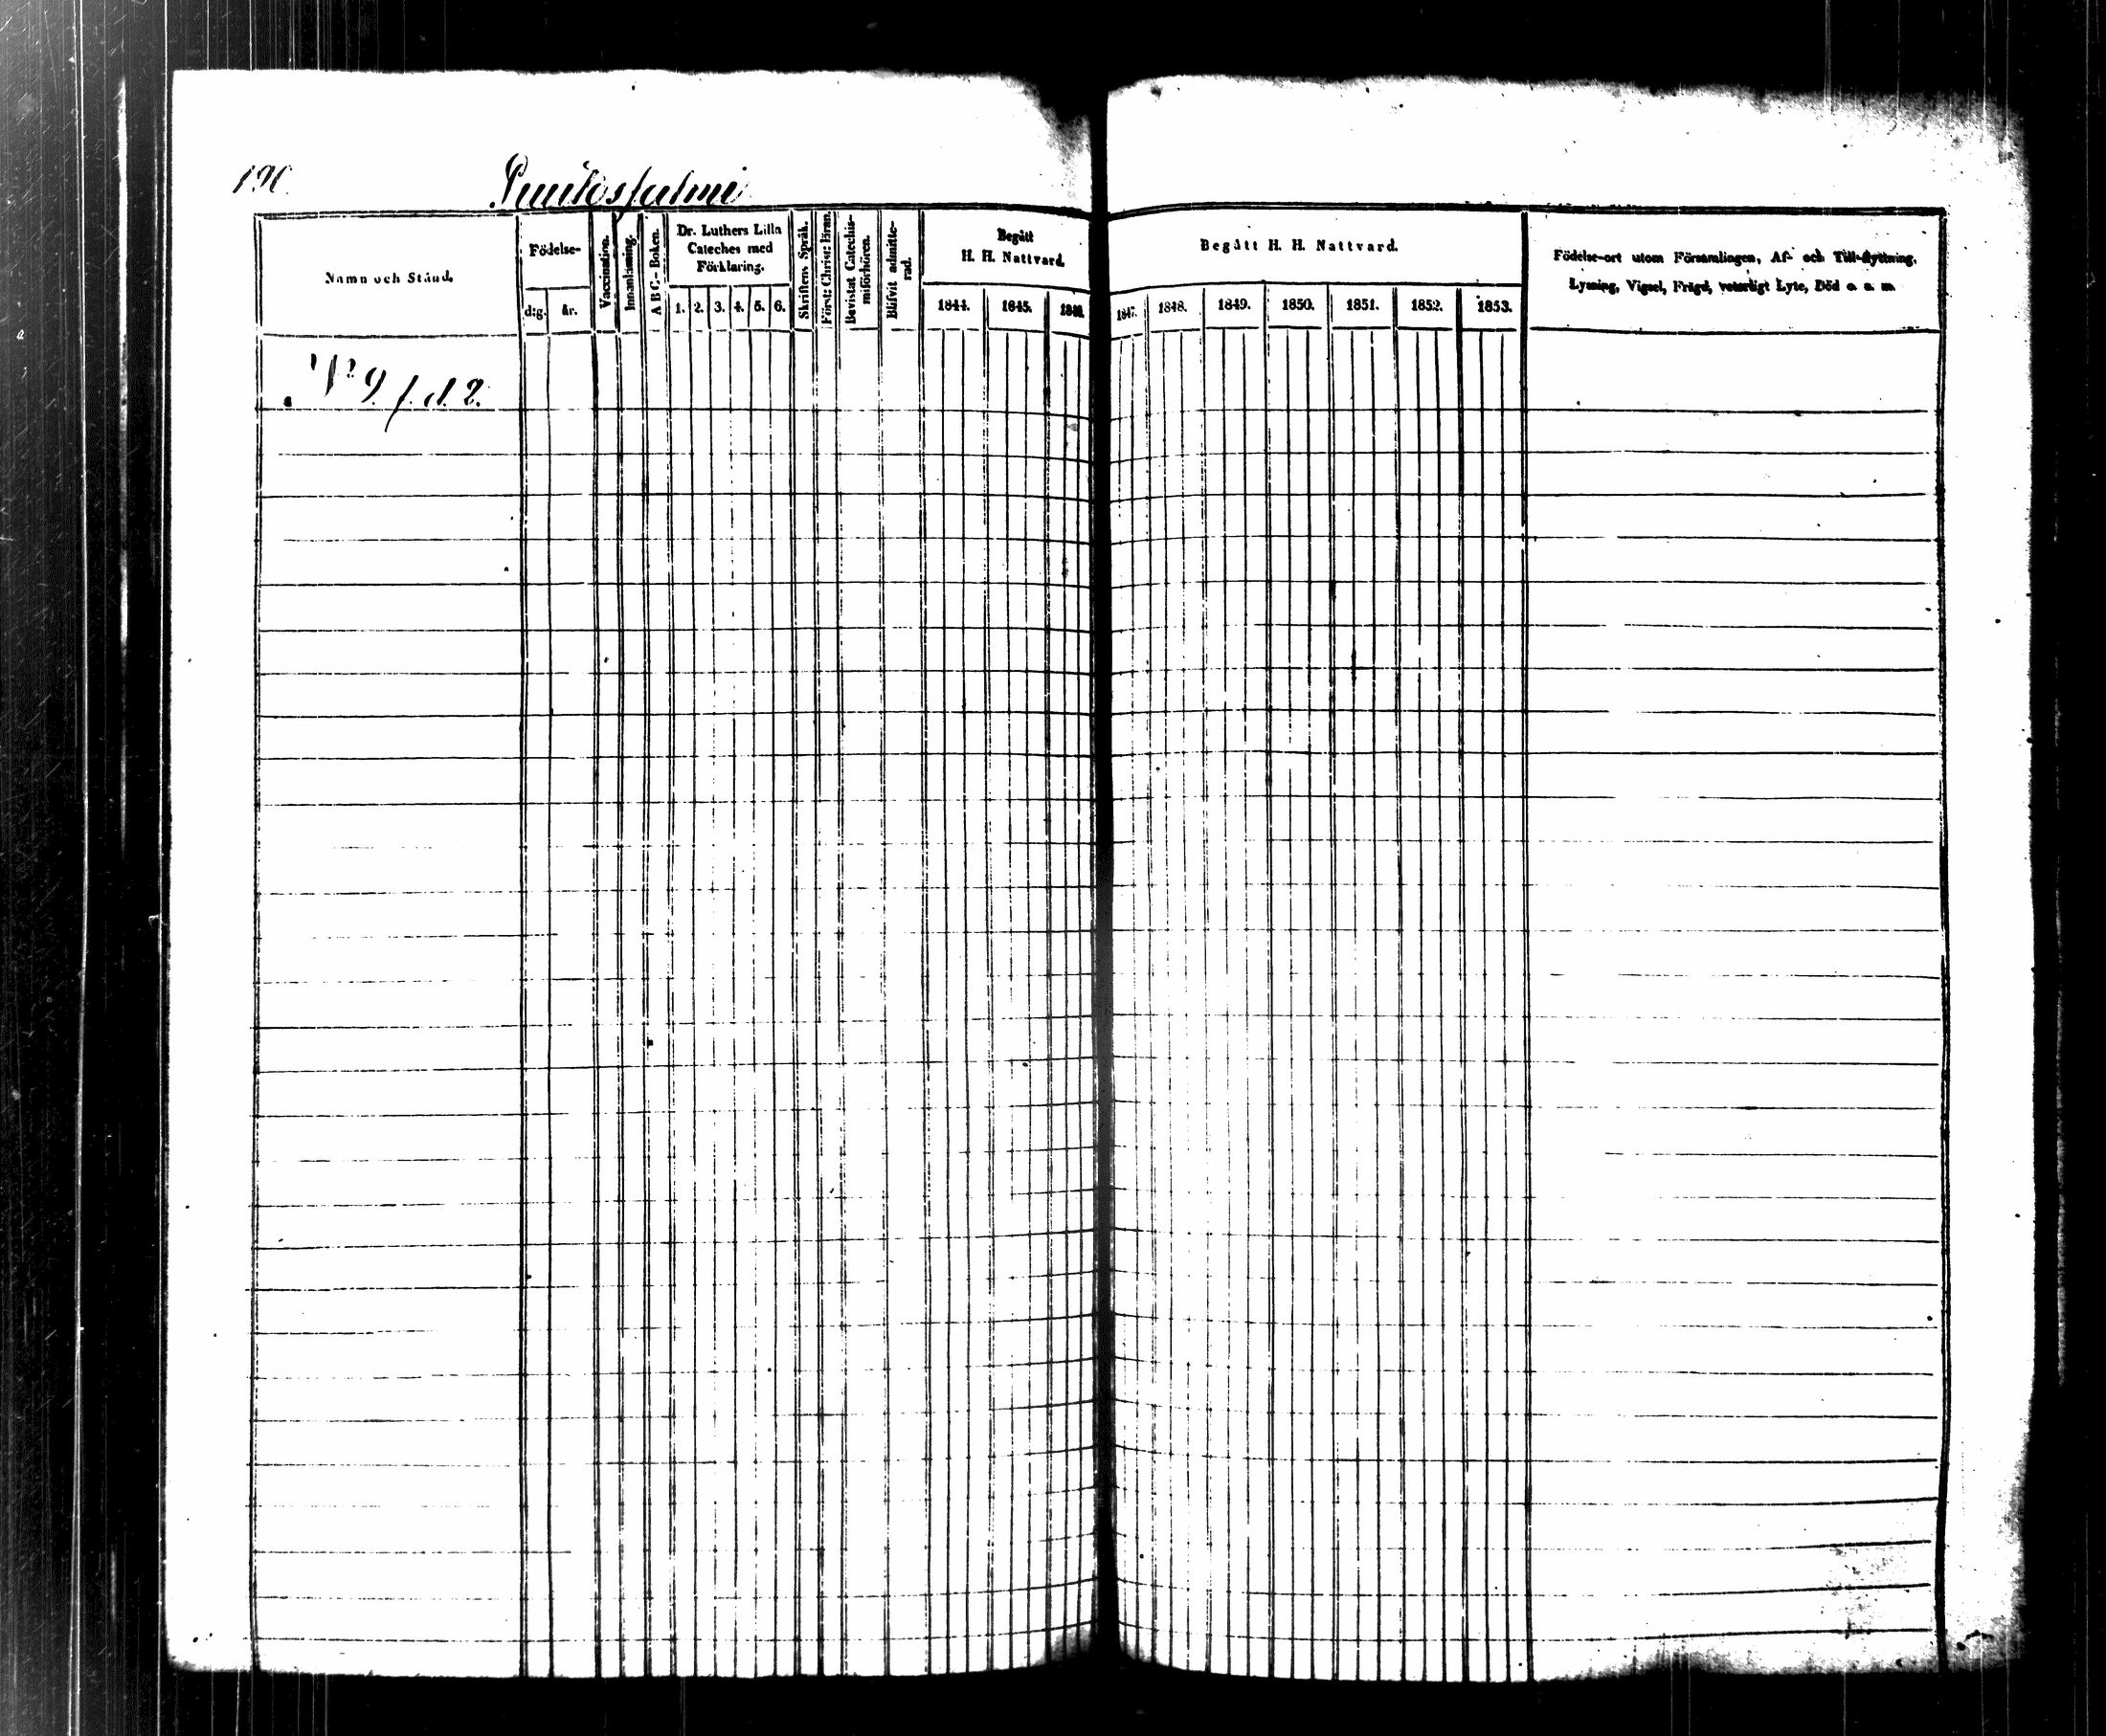 190.
Puutossalmi
Namn och Stånd.
Födelse-
d:g.
år.
Vaccination.
Innanläsning.
A B C.- Boken.
Dr. Luthers Lilla
Cateches med
Förklaring.
1. 2. 3. 4. 5. 6.
Skriftens Språk.
Först: Christ: Bevistat Catechis-
misförhören.
Blifvit admitte-
rad.
Begått
H. H. Nattvard.
1844. 1845. 1846.
Begått H. H. Nattvard.
1847. 1848. 1849. 1850. 1851. 1852. 1853.
Födelse-ort utom Församlingen, Af- och Till-flyttning,
Lysning, Vigsel, Frägd, veterligt Lyte, Död o. s. m.
No 9. f. d. 2.